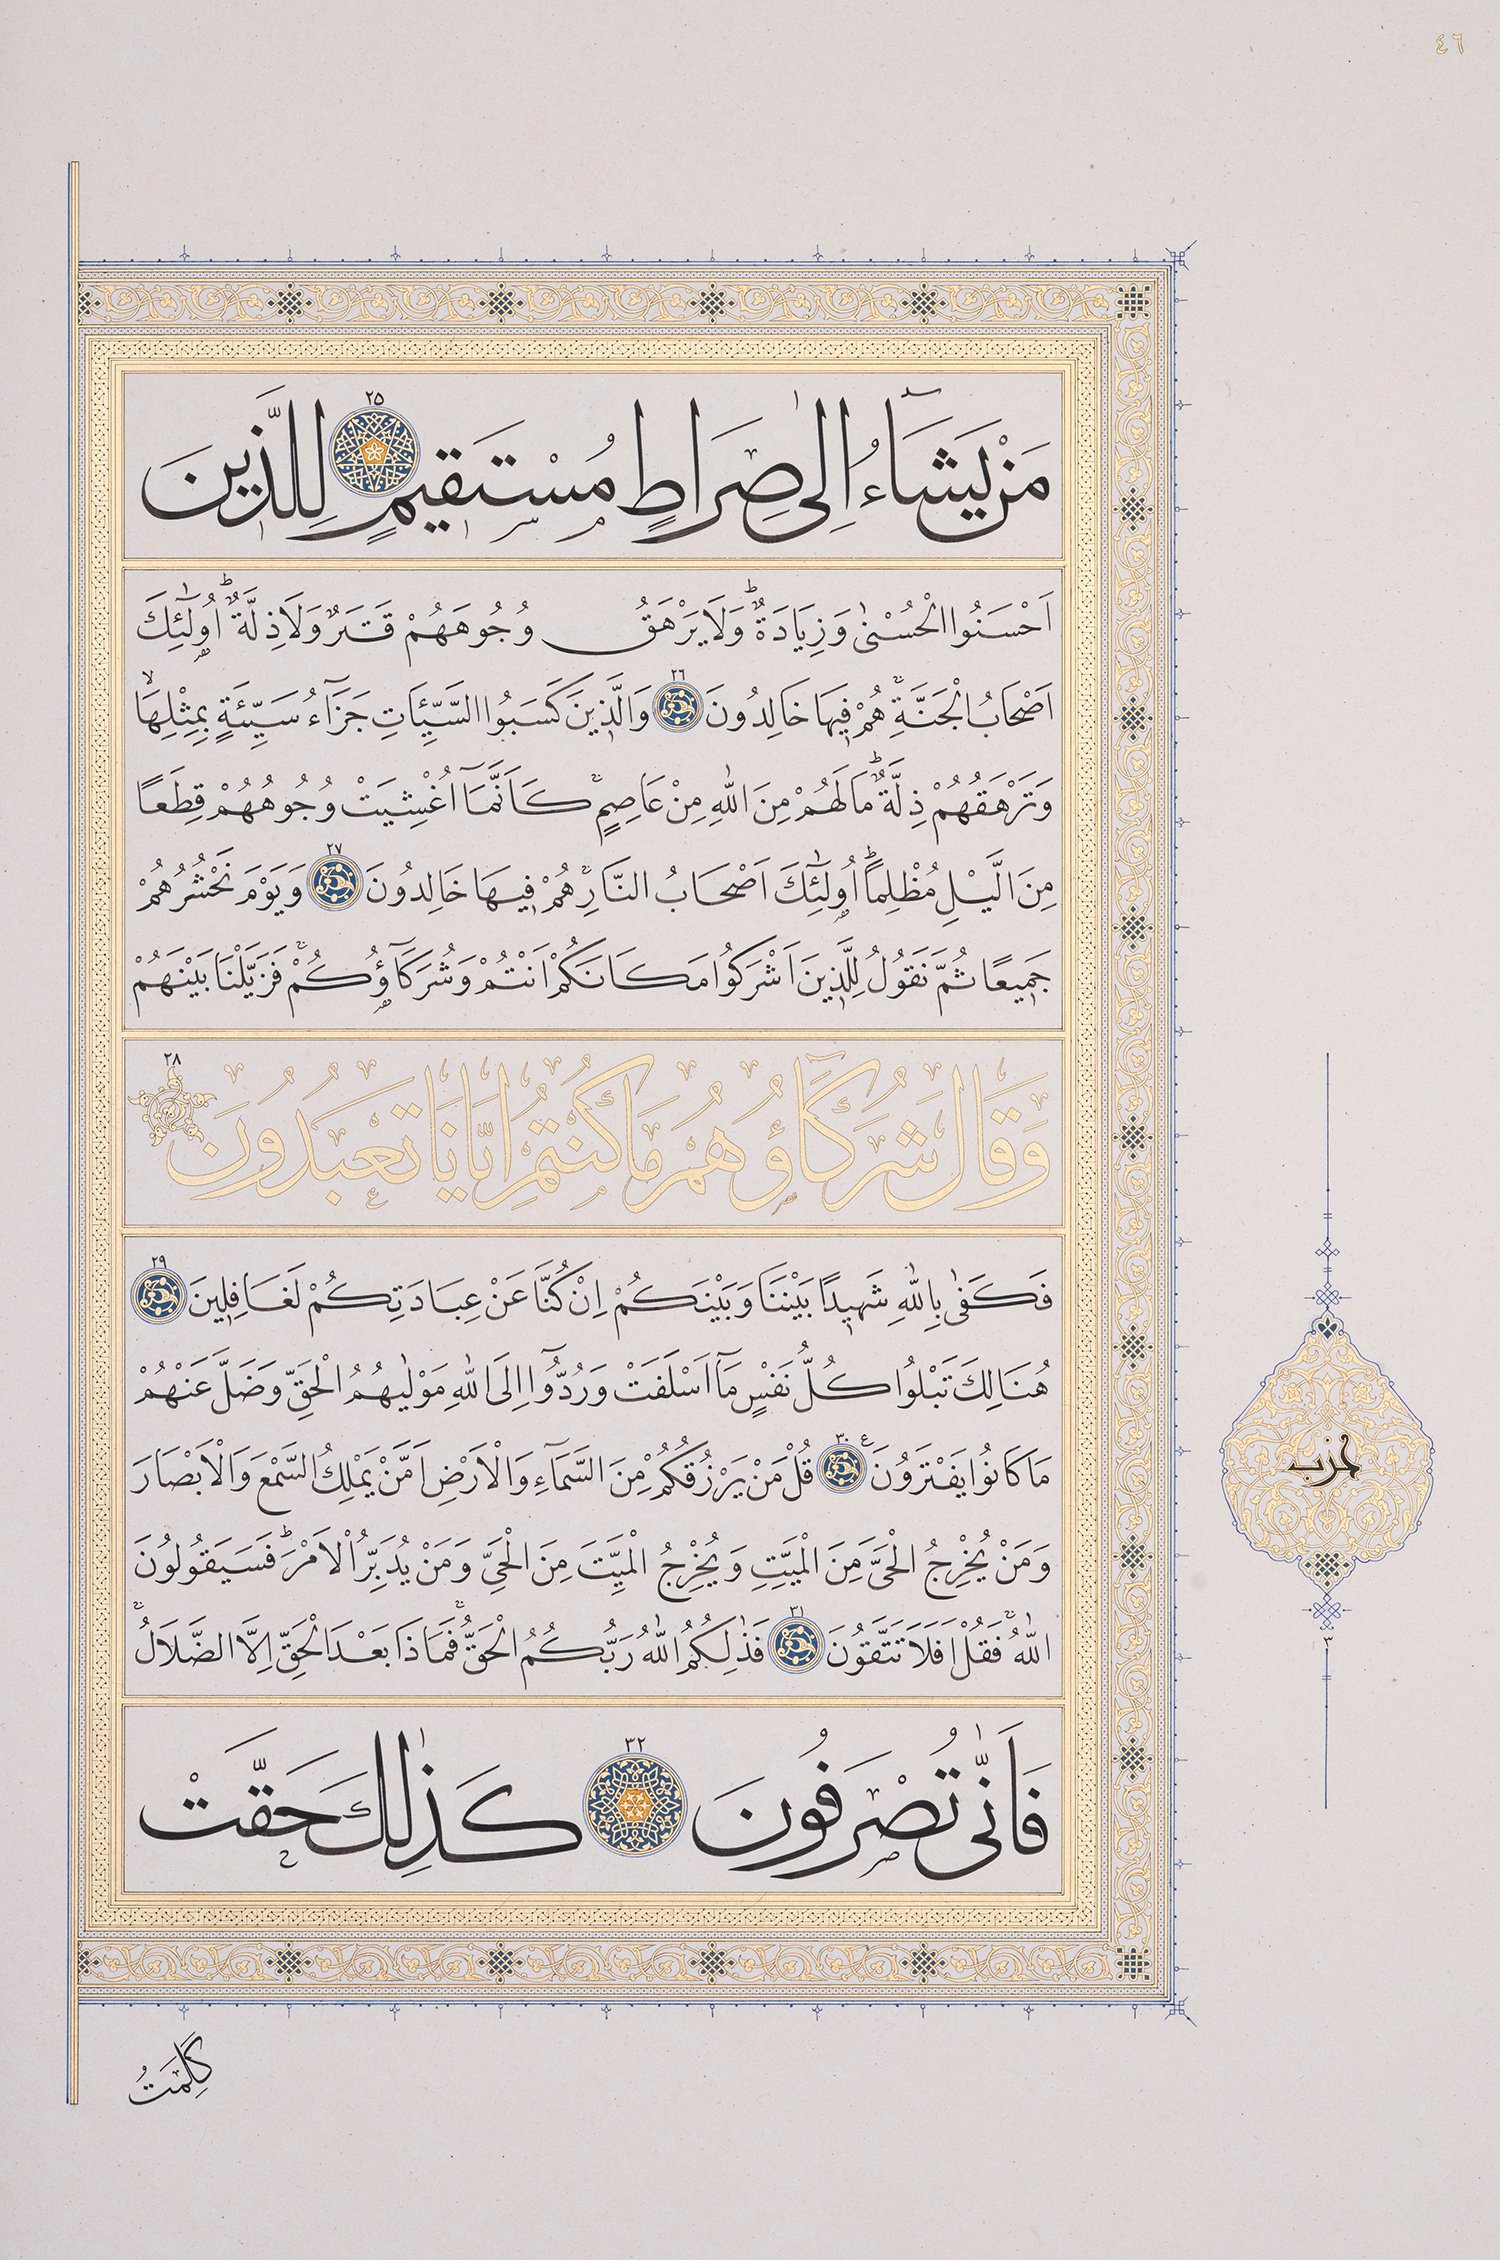 ٤٦
مَنْ يَشَٓاءُ اِلٰى صِرَاطٍ مُسْتَقِيمٍ ٢٥ لِلَّذِينَ
اَحْسَنُوا الْحُسْنٰى وَزِيَادَةٌ وَلَا يَرْهَقُ وُجُوهَهُمْ قَتَرٌ وَلَا ذِلَّةٌ اُو۬لٰٓئِكَ
اَصْحَابُ الْجَنَّةِ هُمْ فِيهَا خَالِدُونَ ٢٦ وَالَّذِينَ كَسَبُوا السَّيِّئَاتِ جَزَٓاءُ سَيِّئَةٍ بِمِثْلِهَا
وَتَرْهَقُهُمْ ذِلَّةٌ مَا لَهُمْ مِنَ اللّٰهِ مِنْ عَاصِمٍ كَاَنَّمَٓا اُغْشِيَتْ وُجُوهُهُمْ قِطَعًا
مِنَ الَّيْلِ مُظْلِمًا اُو۬لٰٓئِكَ اَصْحَابُ النَّارِ هُمْ فِيهَا خَالِدُونَ ٢٧ وَيَوْمَ نَحْشُرُهُمْ
جَمِيعًا ثُمَّ نَقُولُ لِلَّذِينَ اَشْرَكُوا مَكَانَكُمْ اَنْتُمْ وَشُرَكَٓاؤُ۬كُمْ فَزَيَّلْنَا بَيْنَهُمْ
وَقَالَ شُرَكَٓاؤُ۬هُمْ مَا كُنْتُمْ اِيَّانَا تَعْبُدُونَ ٢٨
فَكَفٰى بِاللّٰهِ شَهِيدًا بَيْنَنَا وَبَيْنَكُمْ اِنْ كُنَّا عَنْ عِبَادَتِكُمْ لَغَافِلِينَ ٢٩
هُنَالِكَ تَبْلُوا كُلُّ نَفْسٍ مَٓا اَسْلَفَتْ وَرُدُّٓوا اِلَى اللّٰهِ مَوْلٰيهُمُ الْحَقِّ وَضَلَّ عَنْهُمْ
مَا كَانُوا يَفْتَرُونَ ٣٠ ع قُلْ مَنْ يَرْزُقُكُمْ مِنَ السَّمَٓاءِ وَالْاَرْضِ اَمَّنْ يَمْلِكُ السَّمْعَ وَالْاَبْصَارَ
وَمَنْ يُخْرِجُ الْحَيَّ مِنَ الْمَيِّتِ وَيُخْرِجُ الْمَيِّتَ مِنَ الْحَيِّ وَمَنْ يُدَبِّرُ الْاَمْرَ فَسَيَقُولُونَ
اللّٰهُ فَقُلْ اَفَلَا تَتَّقُونَ ٣١ فَذٰلِكُمُ اللّٰهُ رَبُّكُمُ الْحَقُّ فَمَاذَا بَعْدَ الْحَقِّ اِلَّا الضَّلَالُ
فَاَنّٰى تُصْرَفُونَ ٣٢ كَذٰلِكَ حَقَّتْ
كَلِمَتُ
حزب
٣